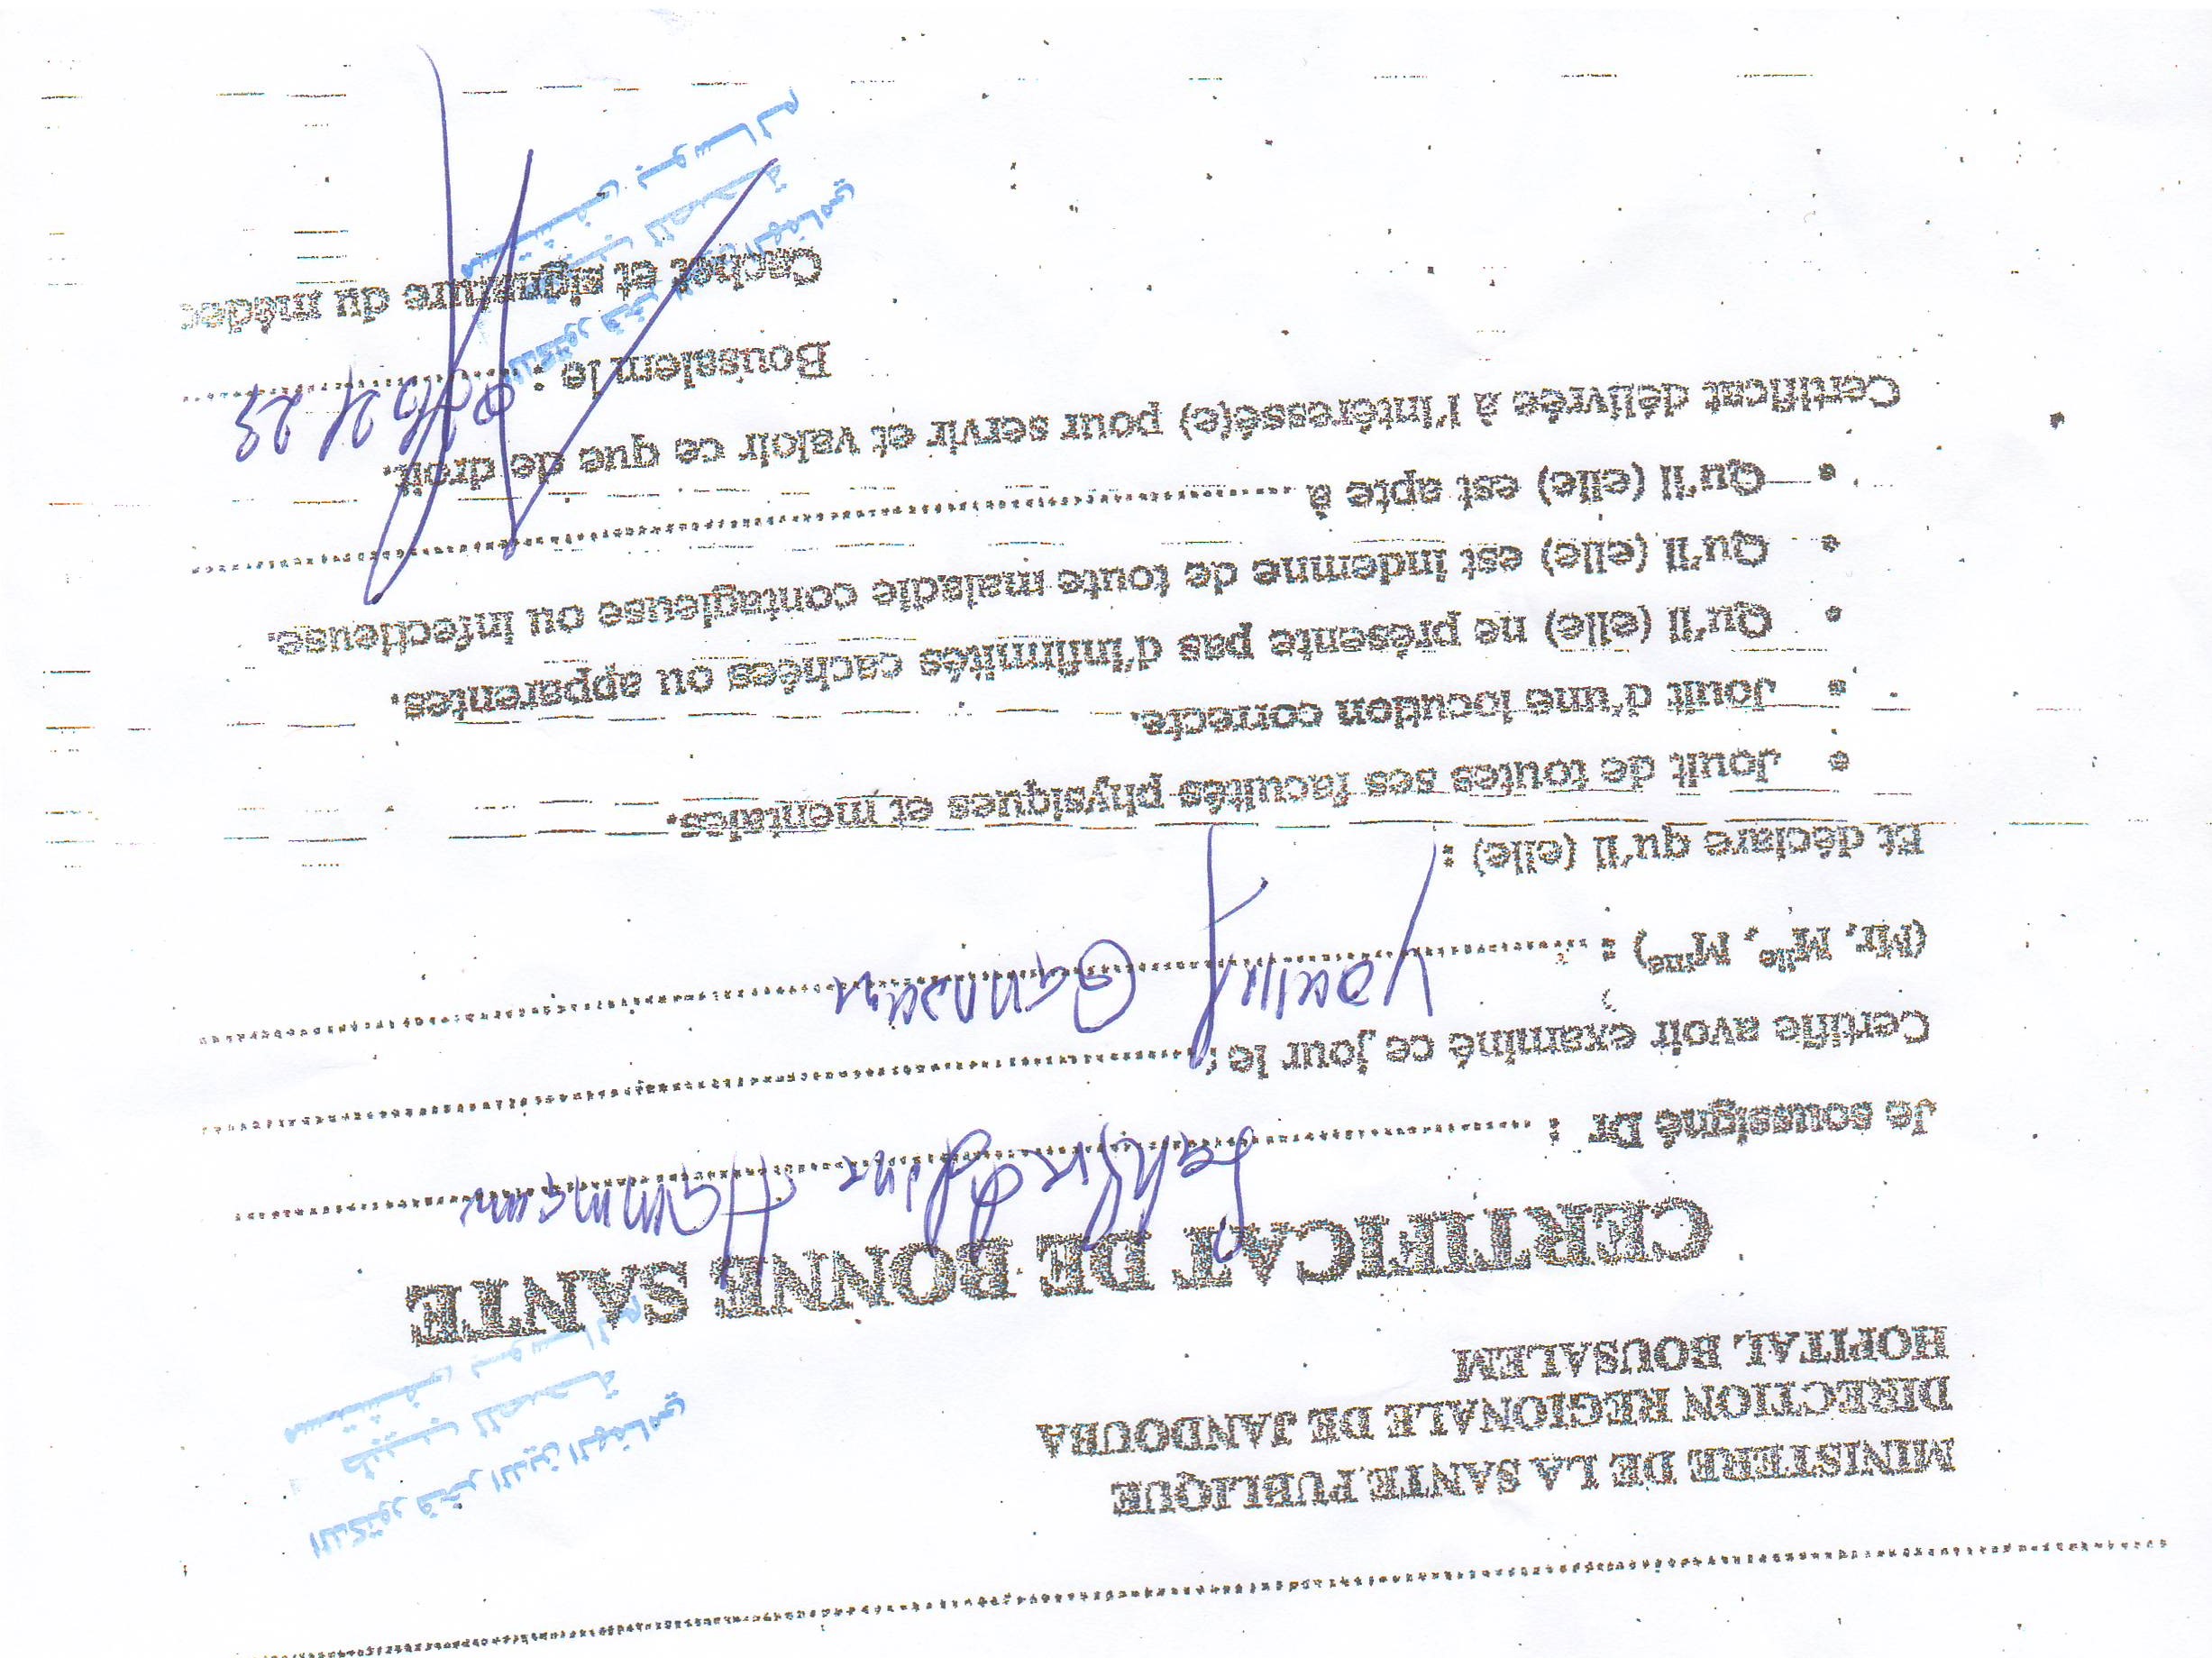 MINISTERE DE LA SANTE PUBLIQUE
DIRECTION REGIONALE DE JANDOUBA
HOPITAL BOUSALEM
الدكتور فخر الدين الهمامي
طبيب للصحة
مستشفى بوسالم
CERTIFICAT DE BONNE SANTE
Je soussigné Dr : Fakhreddine Hammami
Certifie avoir examiné ce jour le :
(Mr, Mlle, Mme) :
Et déclare qu'il (elle) :
• Jouit de toutes ses facultés physiques et mentales.
• Jouit d'une locution correcte.
• Qu'il (elle) ne présente pas d'infirmités cachées ou apparentes.
• Qu'il (elle) est indemne de toute maladie contagieuse ou infectieuse.
• Qu'il (elle) est apte à
Certificat délivrée à l'intéressé(e) pour servir et valoir ce que de droit.
Bousalem le :
Cachet et signature du médec
الدكتور فخر الهمامي
طبيب للصحة
مستشفى بوسالم